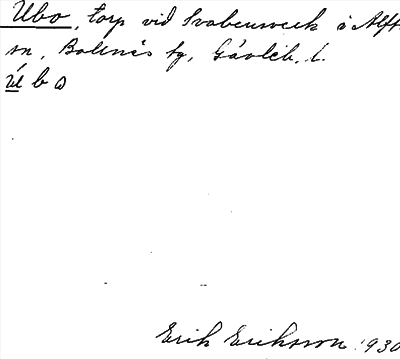 Ubo, torp vid Svabensverk i Alft-
sn, Bollnäs tg, Gävleb. l.
ú b ω
Erik Eriksson 1930